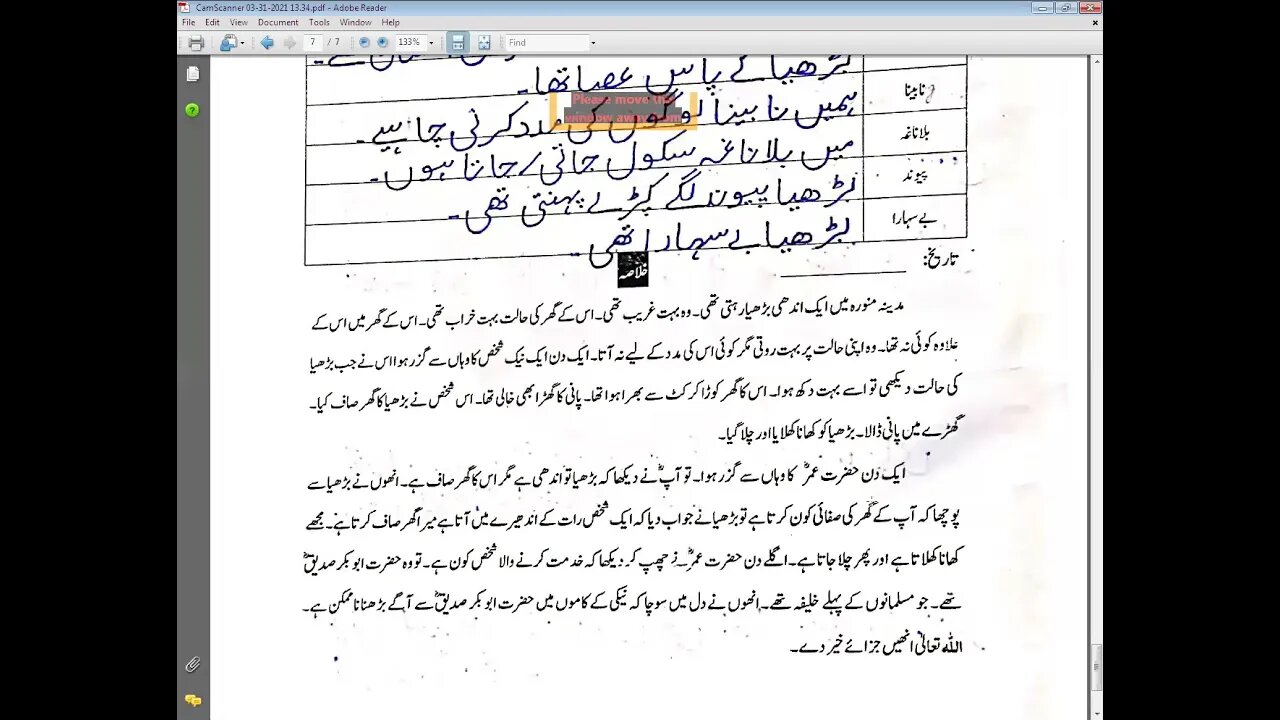 CamScanner 03-31-2021 13.34.pdf - Adobe Reader
File Edit View Document Tools Window Help
7 / 7 133% Find
بڑھیا کے پاس عصا تھا۔
Please move this
window away from
نابینا
ہمیں نابینا لوگوں کی مدد کرنی چاہیے۔
بلاناغہ
میں بلاناغہ سکول جاتی/جاتا ہوں۔
پیوند
بڑھیا پیوند لگے کپڑے پہنتی تھی۔
بے سہارا
بڑھیا بے سہارا تھی۔
تاریخ:
خلاصہ
مدینہ منورہ میں ایک اندھی بڑھیا رہتی تھی۔ وہ بہت غریب تھی۔ اس کے گھر کی حالت بہت خراب تھی۔ اس کے گھر میں اس کے
علاوہ کوئی نہ تھا۔ وہ اپنی حالت پر بہت روتی مگر کوئی اس کی مدد کے لیے نہ آتا۔ ایک دن ایک نیک شخص کا وہاں سے گزر ہوا اس نے جب بڑھیا
کی حالت دیکھی تو اسے بہت دکھ ہوا۔ اس کا گھر کوڑا کرکٹ سے بھرا ہوا تھا۔ پانی کا گھڑا بھی خالی تھا۔ اس شخص نے بڑھیا کا گھر صاف کیا۔
گھڑے میں پانی ڈالا۔ بڑھیا کو کھانا کھلایا اور چلا گیا۔
ایک دن حضرت عمرؓ کا وہاں سے گزر ہوا۔ تو آپؓ نے دیکھا کہ بڑھیا تو اندھی ہے مگر اس کا گھر صاف ہے۔ انھوں نے بڑھیا سے
پوچھا کہ آپ کے گھر کی صفائی کون کرتا ہے تو بڑھیا نے جواب دیا کہ ایک شخص رات کے اندھیرے میں آتا ہے میرا گھر صاف کرتا ہے۔ مجھے
کھانا کھلاتا ہے اور پھر چلا جاتا ہے۔ اگلے دن حضرت عمرؓ نے چھپ کر دیکھا کہ خدمت کرنے والا شخص کون ہے۔ تو وہ حضرت ابوبکر صدیقؓ
تھے۔ جو مسلمانوں کے پہلے خلیفہ تھے۔ انھوں نے دل میں سوچا کہ نیکی کے کاموں میں حضرت ابوبکر صدیقؓ سے آگے بڑھنا ناممکن ہے۔
اللہ تعالیٰ انھیں جزائے خیر دے۔